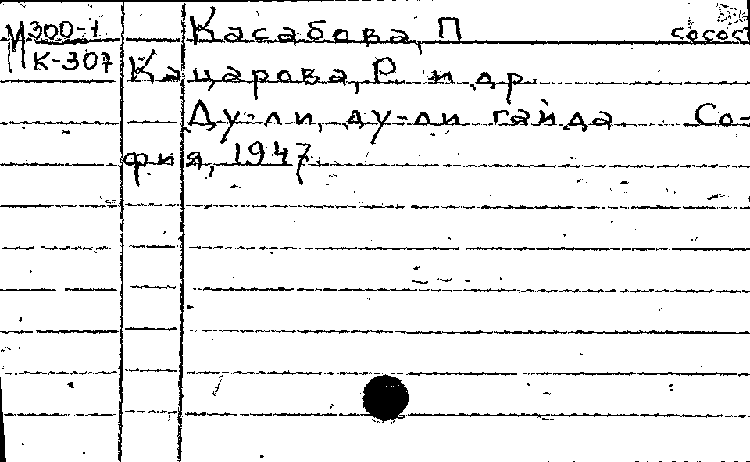 М300-1 Касабова, П
К-307 Кацарова, Р и др.
Ду-ли, ду-ли гайда. Со-
фия, 1947